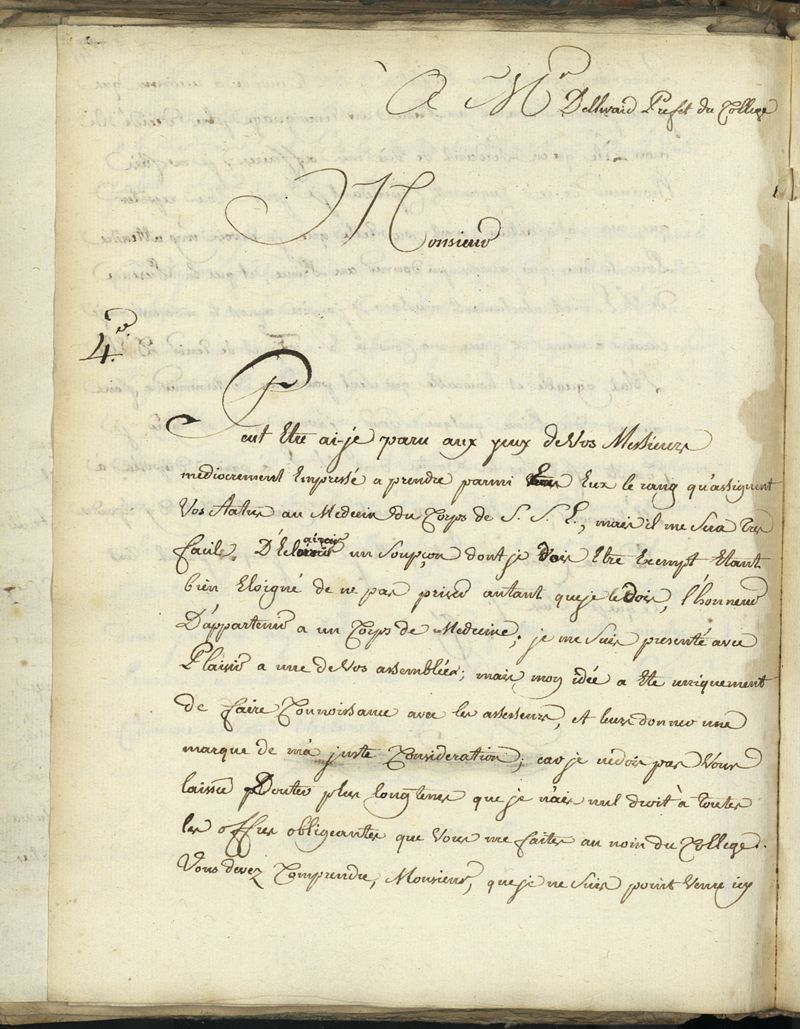 A Mr Dellwaid Prefet du College
Monsieur
4.e
Peut Etre ai-je paru aux yeux de Vos Messieurs
mediocrement Empressé a prendre parmi Eux le rang qu'assignent
Vos Statuts au Medecin du Corps de S. S. E., mais il me Sera tres
facile D'Eclaircir un Soupçon dont je dois Etre Exempt Etant
bien Eloigné de ne pas priser autant que je le dois, l'honneur
D'appartenir a un Corps de Medecine; je me Suis presenté avec
Plaisir a une de Vos assemblées; mais mon idée a Eté uniquement
de faire Connoissance avec les assesseurs, et leurs donner une
marque de ma juste Consideration; car je ne dois pas Vous
laisser Douter plus longtems que je n'ais nul droit à toutes
les offres obligeantes que Vous me faites au nom du College.
Vous devez Comprendre, Monsieur, que je ne Suis point Venu icy